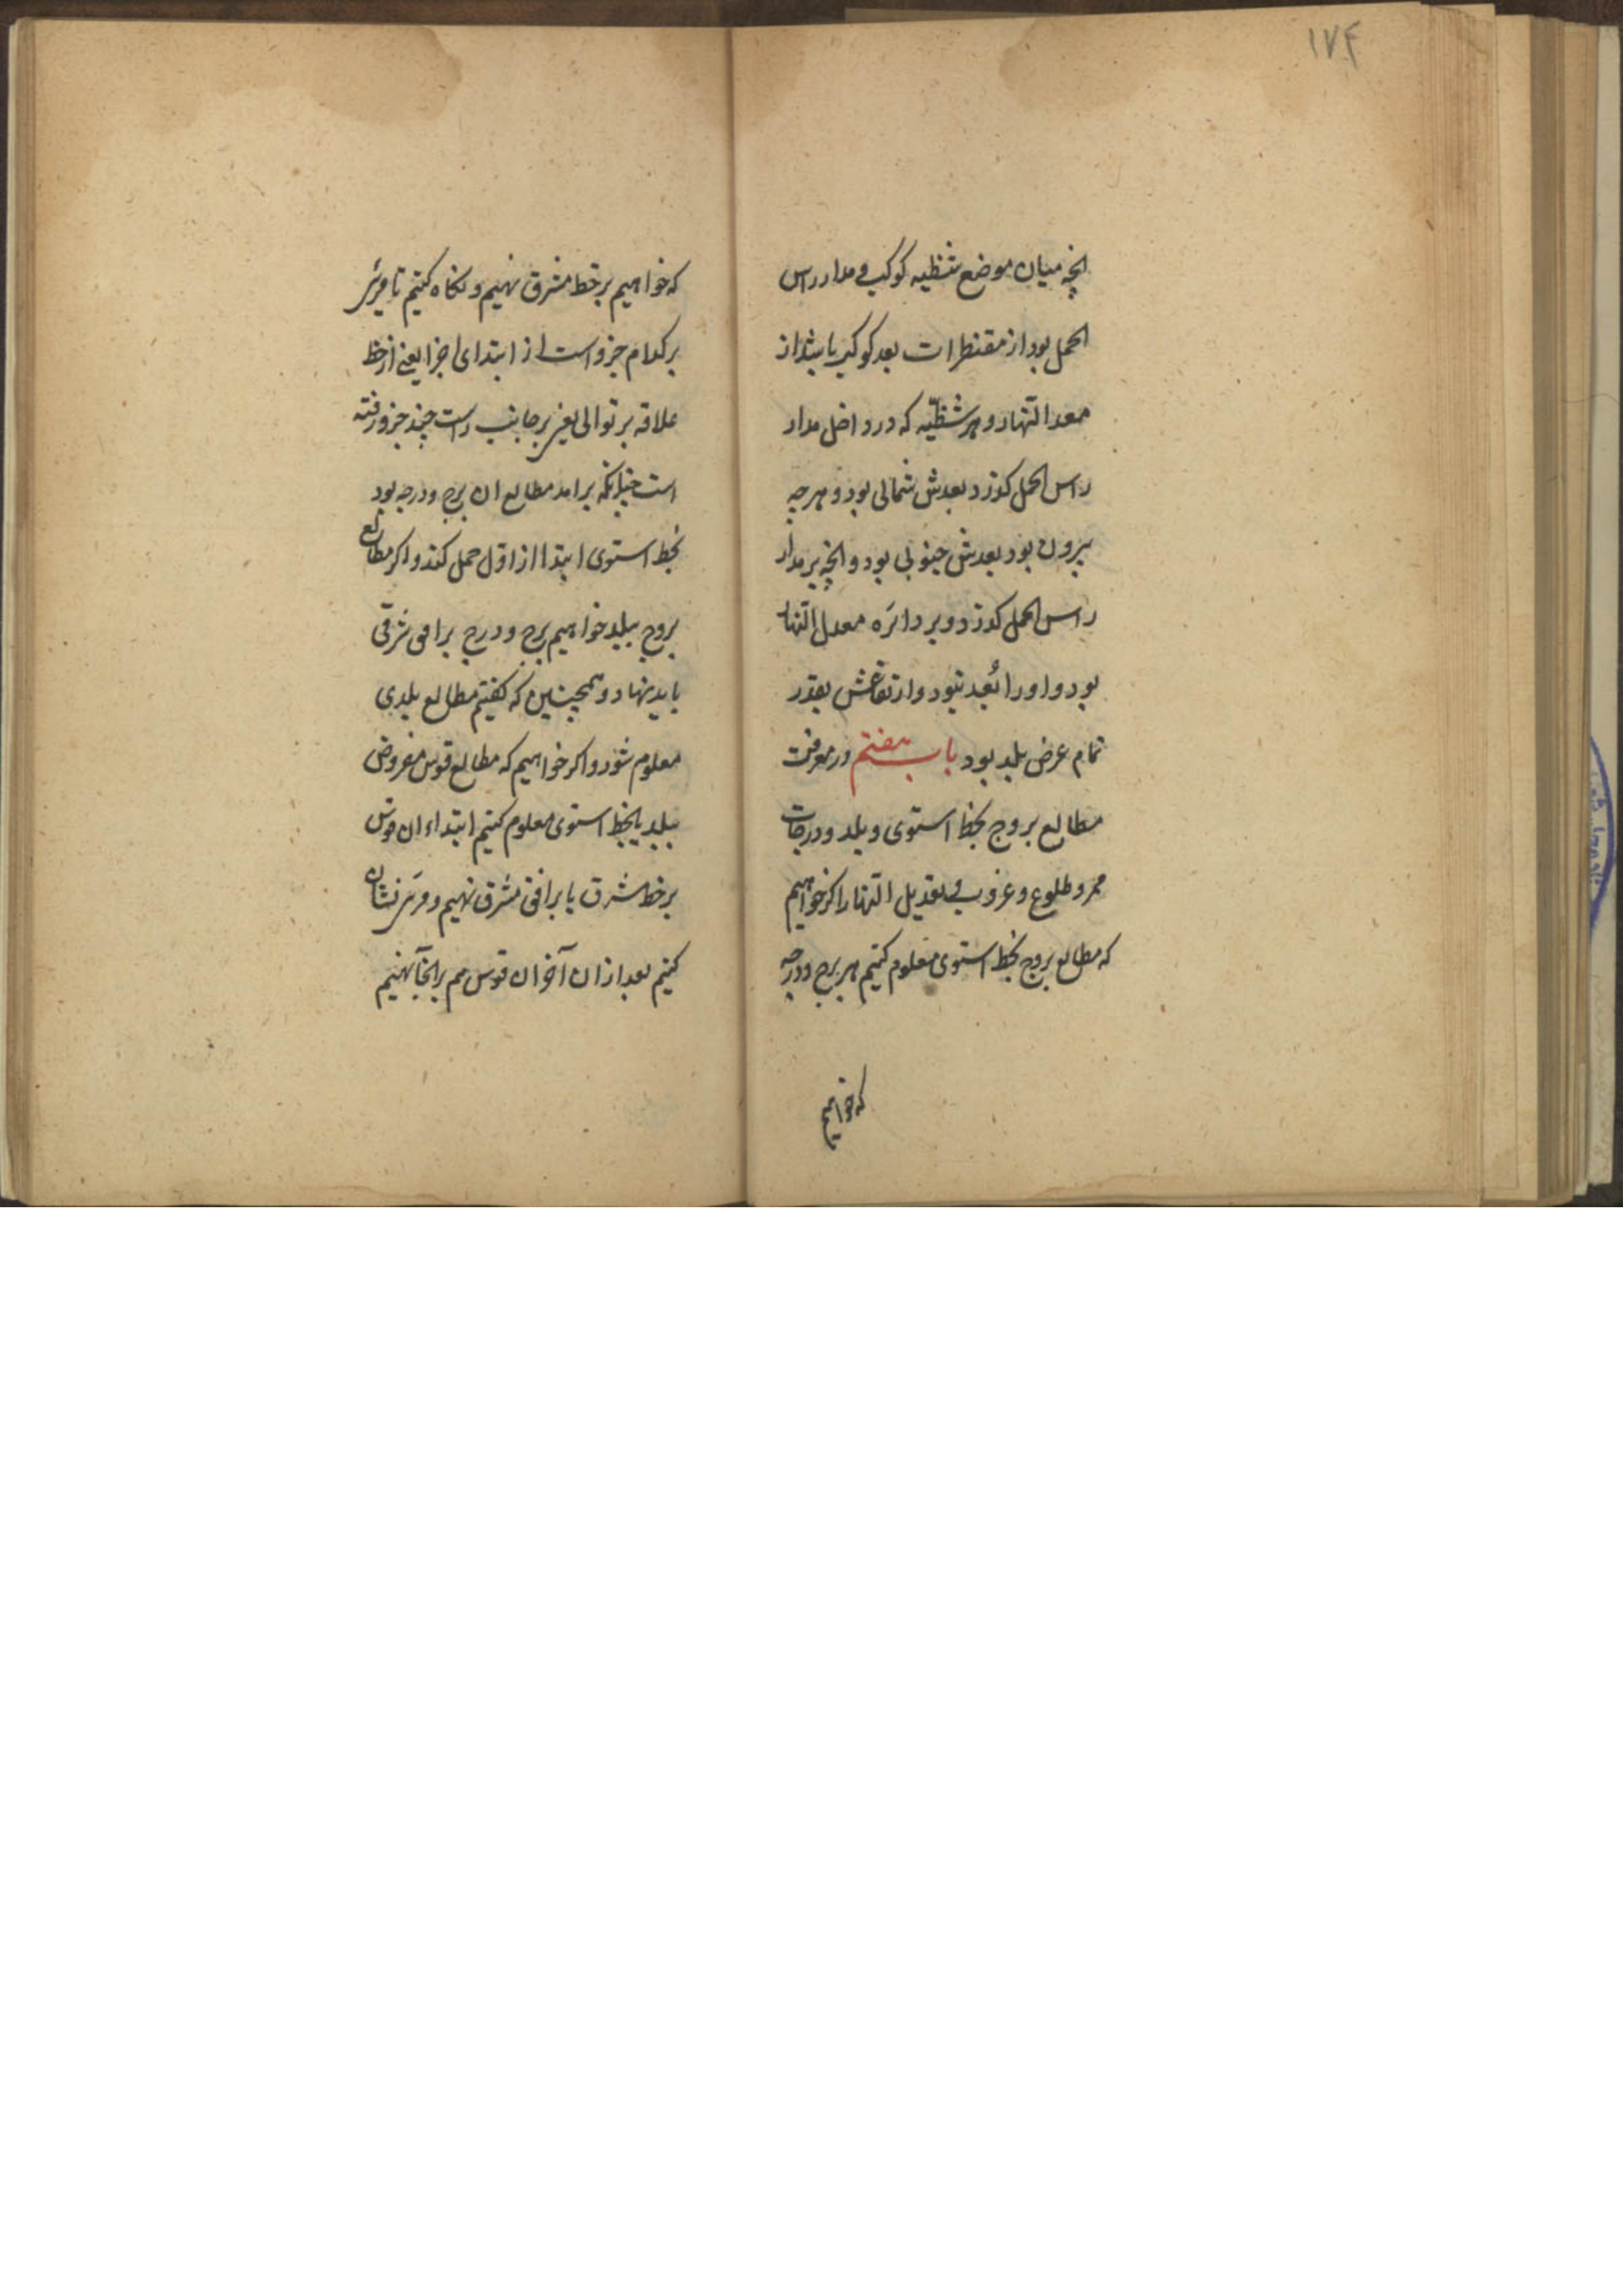 ۱۷۴
انچه میان موضع شظیه کوکب و مدار راس
الحمل بود از مقنطرات بعد کوکب باشد از
معدل النهار و هر شظیّه که در داخل مدار
راس الحمل کذرد بعدش شمالی بود و هر چه
بیرون بود بعدش جنوبی بود و انچه بر مدار
راس الحمل کذرد و بر دائره معدل النهار
بود و او را بُعد نبود و ارتفاعش بقدر
تمام عرض بلد بود باب هفتم در معرفت
مطالع بروج بخط استوی و بلد و درجات
ممر و طلوع و غروب و تعدیل النهار اکر خواهیم
که مطالع بروج بخط استوی معلوم کنیم هر برج و درجه
که خواهیم
که خواهیم بر خط مشرق نهیم و نکاه کنیم تا مری
بر کدام جزو است از ابتدای اجزا یعنی از خط
علاقه بر توالی یعنی بر جانب راست چند جزو رفته
است چنانکه براید مطالع ان برج و درجه بود
بخط استوی ابتدا از اول حمل کند و اکر مطالع
بروج ببلد خواهیم برج و درج بر افق شرقی
باید نهاد و همچنین که کفتیم مطالع بلدی
معلوم شود و اکر خواهیم که مطالع قوس مفروض
ببلد یا بخط استوی معلوم کنیم ابتداء ان قوس
بر خط مشرق یا بر افق مشرق نهیم و مری نشان
کنیم بعد از ان آخر ان قوس هم بر انجا نهیم